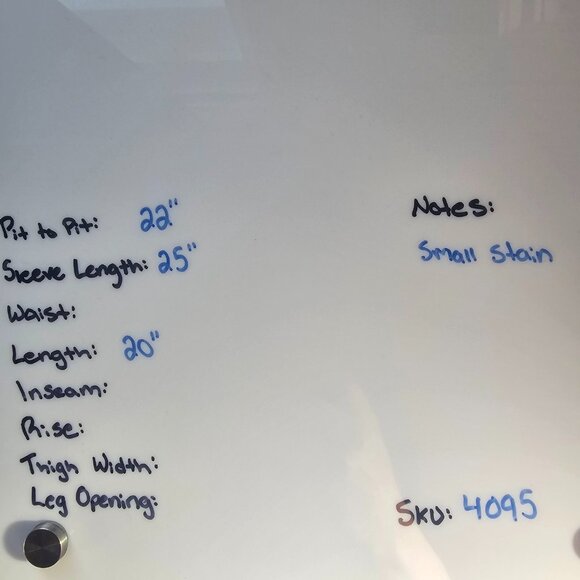 Pit to Pit: 22"
Sleeve Length: 25"
Waist:
Length: 20"
Inseam:
Rise:
Thigh Width:
Leg Opening:
Notes:
Small Stain
SKU: 4095